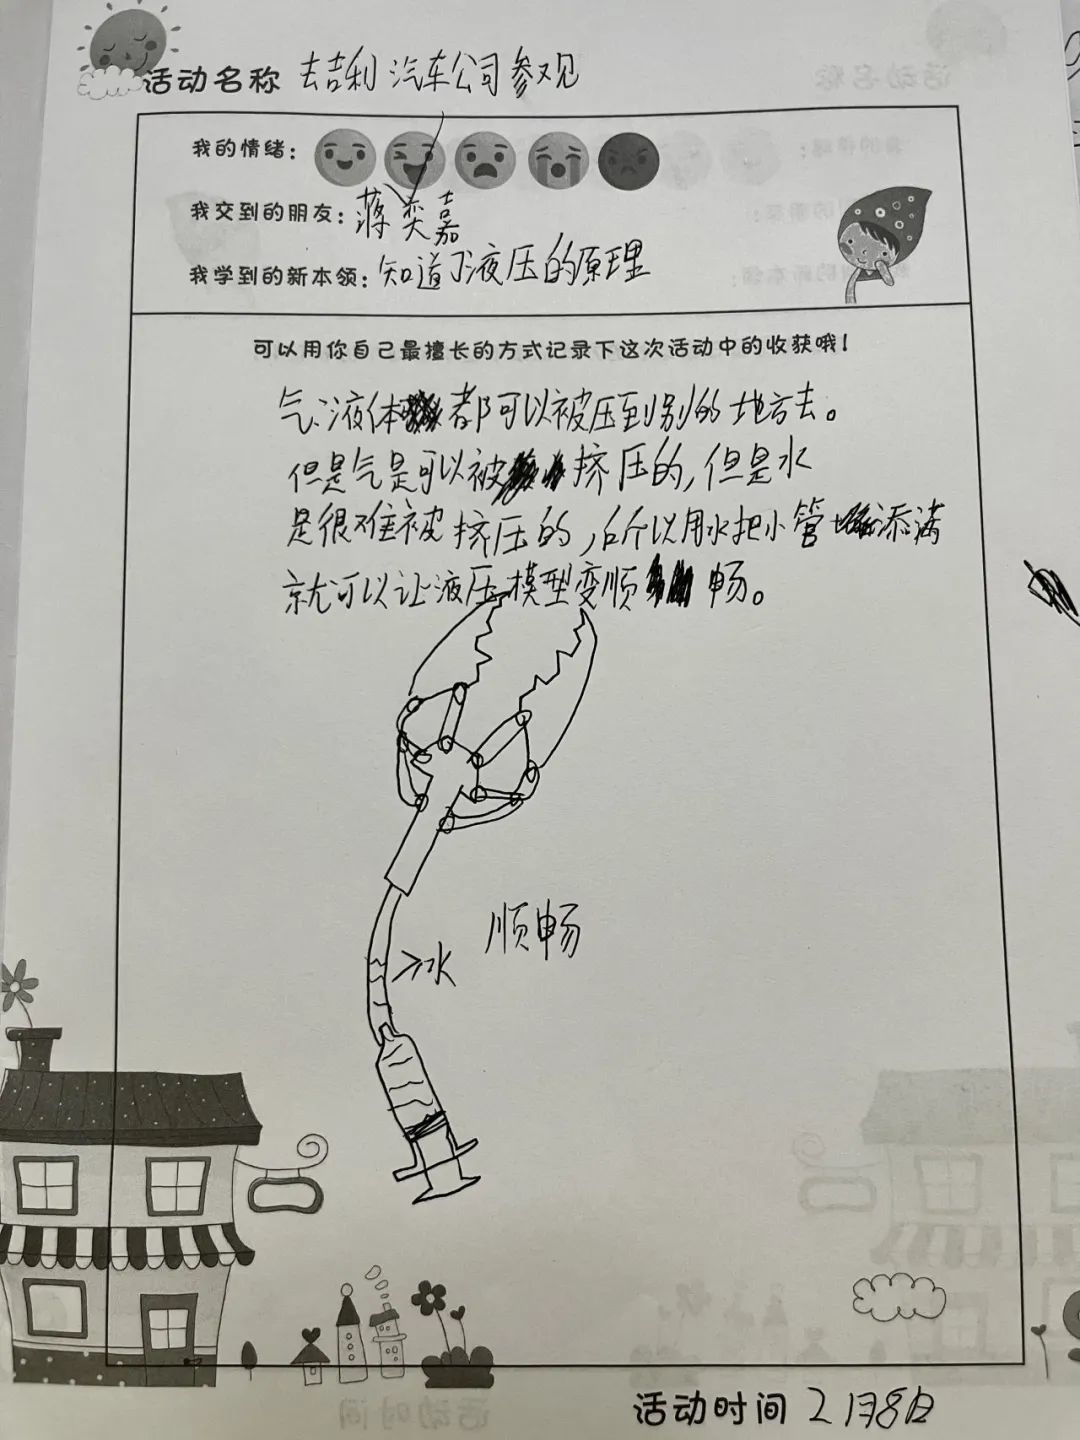 活动名称 去吉利汽车公司参观
我的情绪：
我交到的朋友：蒋奕嘉
我学到的新本领：知道了液压的原理
可以用你自己最擅长的方式记录下这次活动中的收获哦！
气、液体都可以被压到别的地方去。
但是气是可以被挤压的，但是水
是很难被挤压的，所以用水把小管添满
就可以让液压模型变顺畅。
顺畅
水
活动时间 2月8日